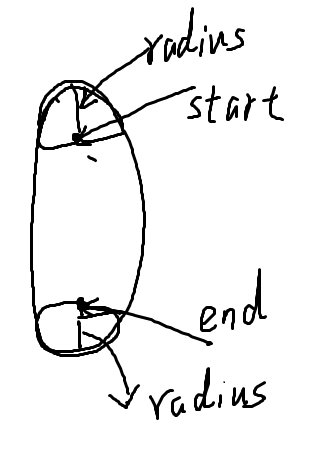 radius
start
end
radius